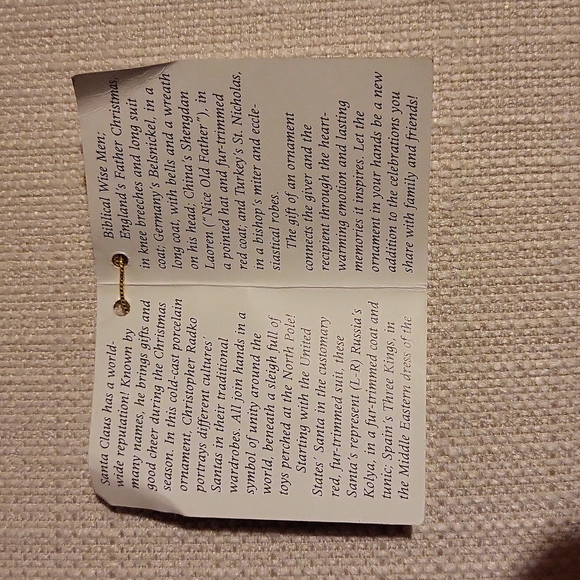 Santa Claus has a world-
wide reputation! Known by
many names, he brings gifts and
good cheer during the Christmas
season. In this cold-cast porcelain
ornament, Christopher Radko
portrays different cultures'
Santas in their traditional
wardrobes. All join hands in a
symbol of unity around the
world, beneath a sleigh full of
toys perched at the North Pole!
Starting with the United
States' Santa in the customary
red, fur-trimmed suit, these
Santa's represent (L-R) Russia's
Kolya, in a fur-trimmed coat and
tunic; Spain's Three Kings, in
the Middle Eastern dress of the
Biblical Wise Men;
England's Father Christmas,
in knee breeches and long suit
coat; Germany's Belsnickel, in a
long coat, with bells and a wreath
on his head, China's Shengdan
Laoren ("Nice Old Father"), in
a pointed hat and fur-trimmed
red coat; and Turkey's St. Nicholas,
in a bishop's miter and eccle-
siastical robes.
The gift of an ornament
connects the giver and the
recipient through the heart-
warming emotion and lasting
memories it inspires. Let the
ornament in your hands be a new
addition to the celebrations you
share with family and friends!